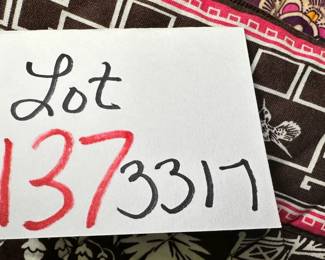 Lot
137 3317